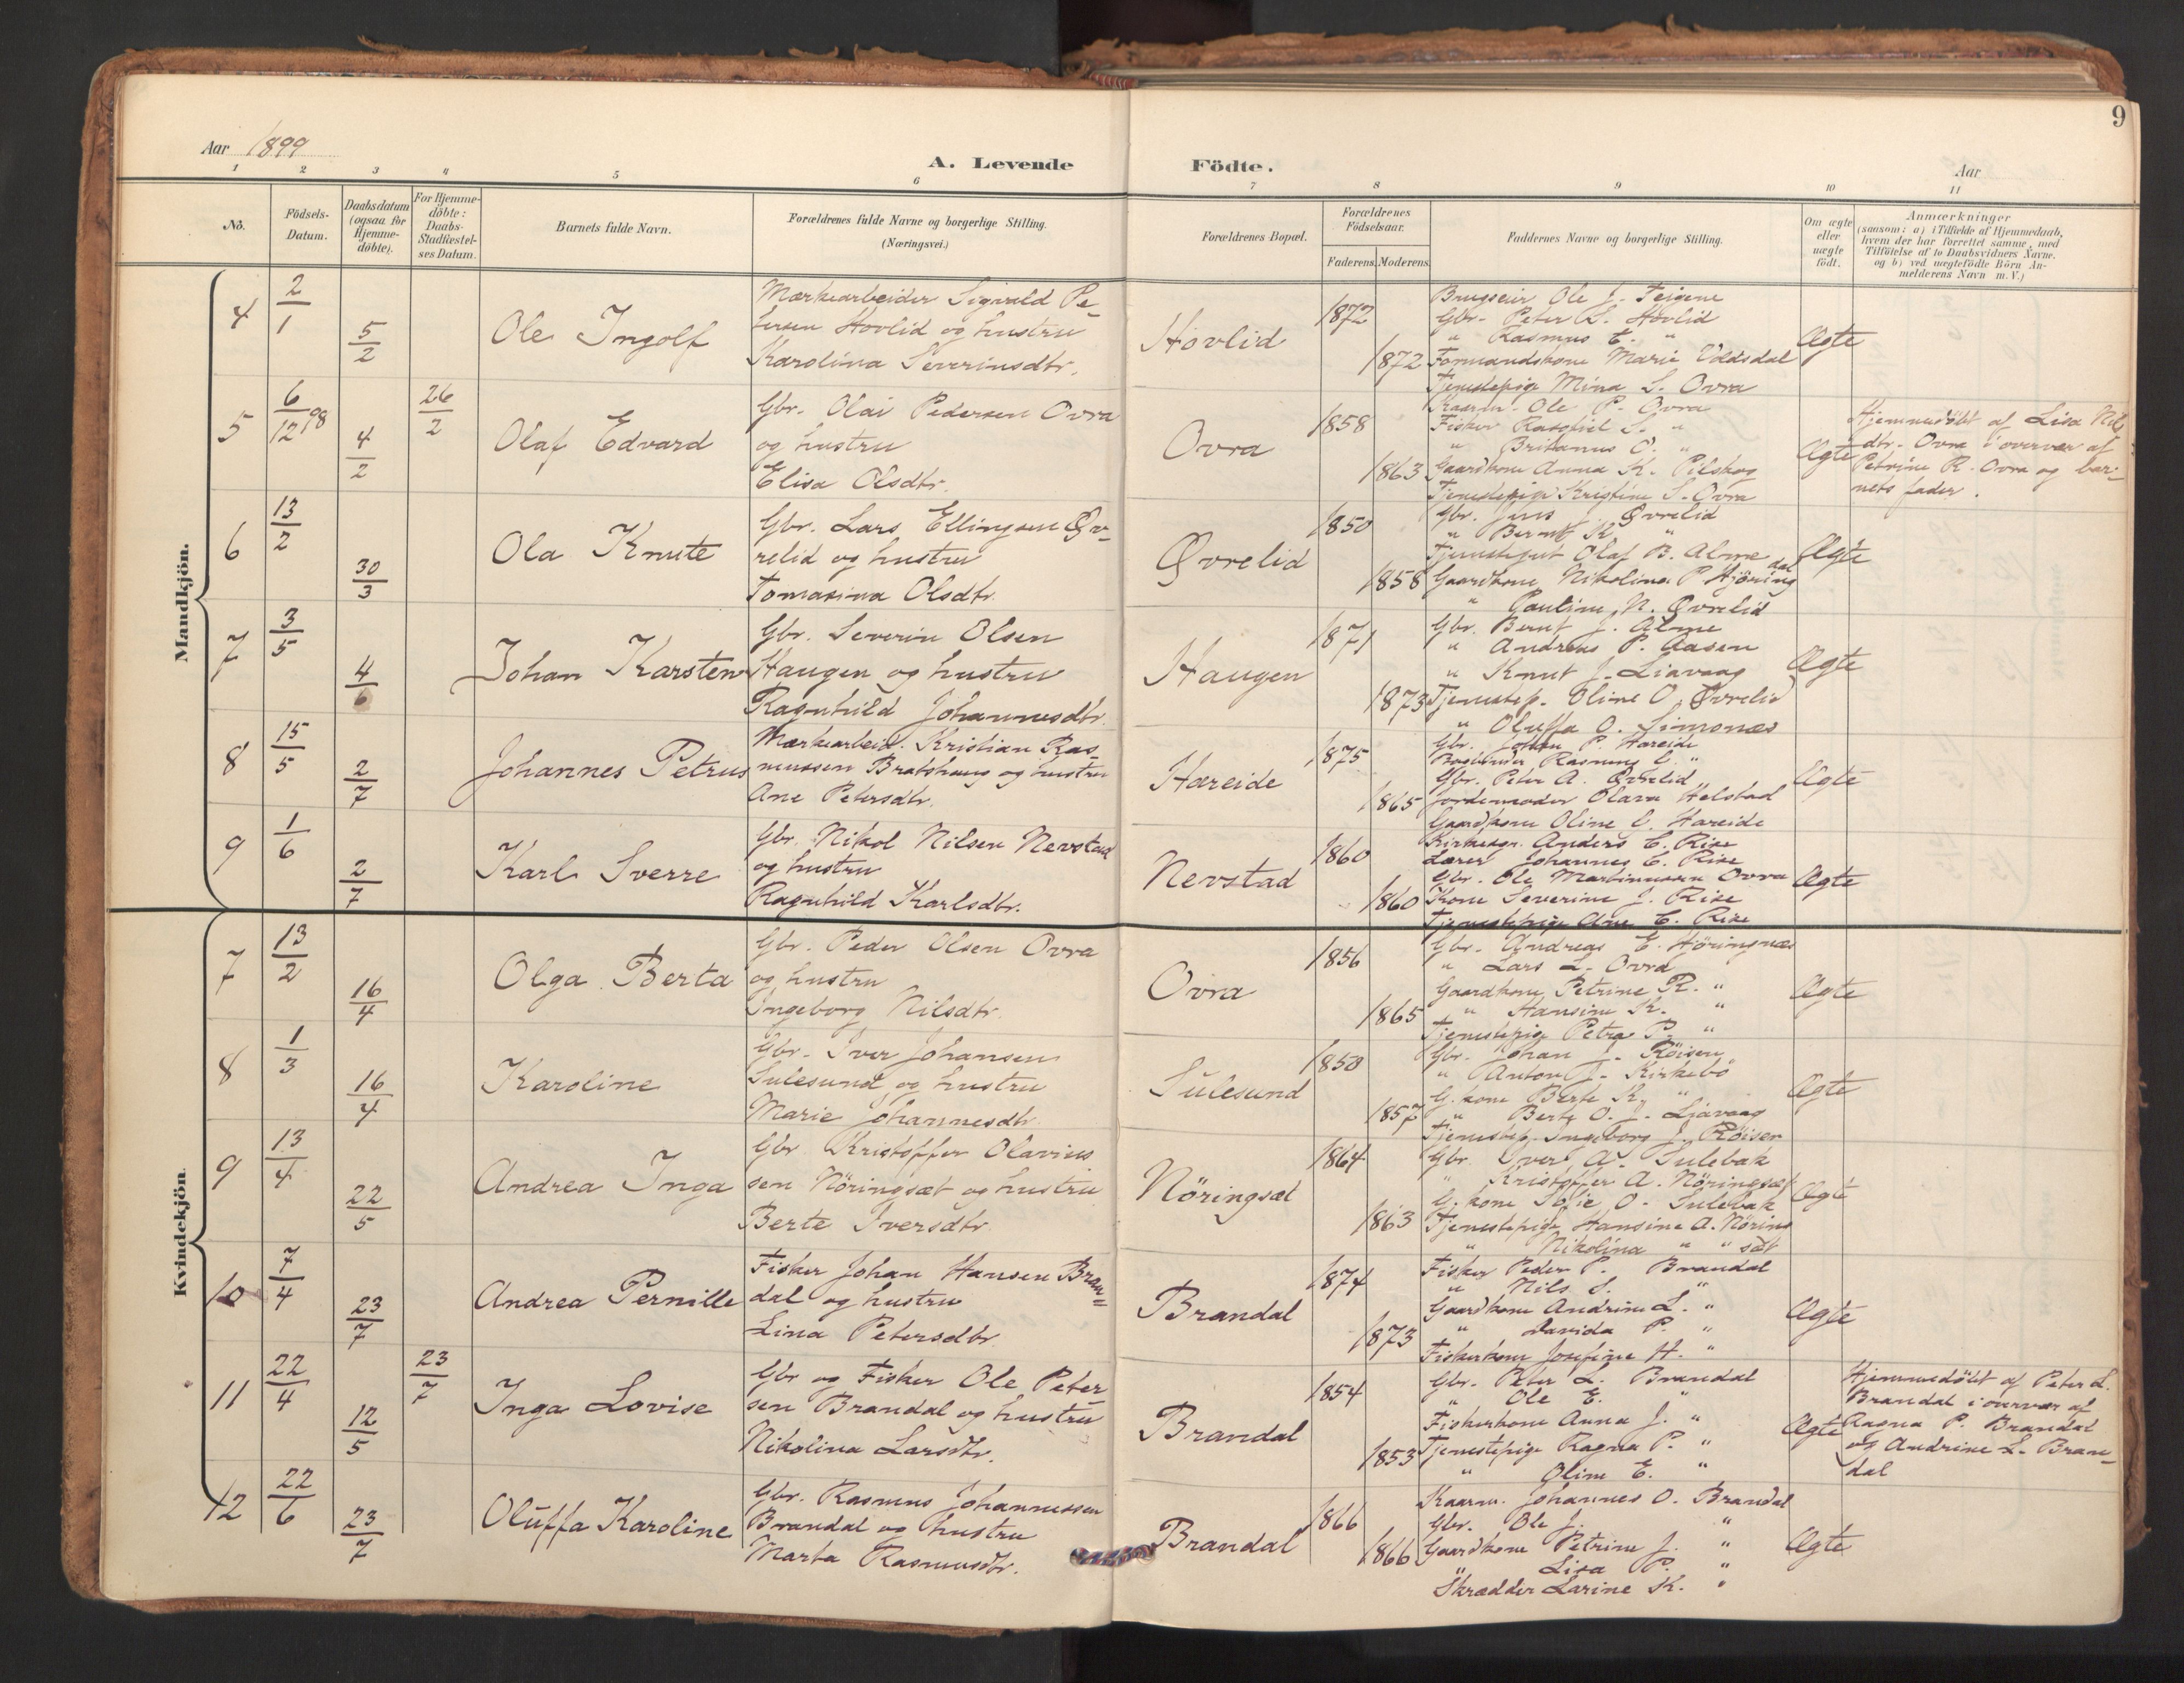 9
Aar 1899
A. Levende Födte.
Aar
1 2 3 4 5 6 7 8 9 10 11
No.
Födsels-Datum.
Daabsdatum (ogsaa for Hjemme-döbte).
For Hjemme-döbte: Daabs-Stadfæstel-ses Datum.
Barnets fulde Navn.
Forældrenes fulde Navne og borgerlige Stilling.
(Næringsvei.)
Forældrenes Bopæl.
Forældrenes Födselsaar.
Faderens. Moderens.
Faddernes Navne og borgerlige Stilling.
Om ægte eller uægte födt.
Anmærkninger
(saasom: a) i Tilfælde af Hjemmedaab,
hvem der har forrettet samme, med
Tilföielse af to Daabsvidners Navne.
og b) ved uægtefödte Börn An-
melderens Navn m. V.)
Mandkjön.
4 2/1 5/2
Ole Ingolf
Mærkearbeider Sigvald Pe-
tersen Hovlid og hustru
Karolina Severinsdtr.
Hovlid
1872
1872
Brugseier Ole J. Teigene
Gbr. Peter L. Hovlid
" Rasmus E. "
Formandskone Marie Voldsdal
Tjenestepige Mina S. Ovra
Ægte
5 6/12 98 4/2 26/2
Olaf Edvard
Gbr. Olai Pedersen Ovra
og hustru
Elisa Olsdtr.
Ovra
1858
1863
Kaarm. Ole P. Ovra
Fisker S. "
" O. "
Gaardkone Anna K. Pilskog
Tjenestepige Kristine S. Ovra
Ægte
Hjemmedöbt af Lisa Nils
dtr. Ovra i overvær af
Petrine R. Ovra og bar-
nets fader.
6 13/2 30/3
Ola Knute
Gbr. Lars Ellingsen Øv-
relid og hustru
Tomasina Olsdtr.
Øvrelid
1850
1858
Gbr. Jens J. Øvrelid
" Bernt K. "
Tjenestegut Olaf B. Alme
Gaardkone Nikolina P. Hjöringdal
" Pauline N. Øvrelid
Ægte
7 3/5 4/6
Johan Karsten
Gbr. Severin Olsen
Haugen og hustru
Ragnhild Johannesdtr.
Haugen
1871
1873
Gbr. Bernt J. Alme
" Andreas P. Aasen
" Knut J. Liavaag
Tjenestep. Oline O. Øvrelid
" Oluffa O. Simonnæs
Ægte
8 15/5 2/7
Johannes Petrus
Mærkearbeid. Kristian Ras-
mussen Bratshaug og hustru
Ane Petersdtr.
Hareide
1875
1865
Gbr. Johan P. Hareide
Rasmus E. "
Gbr. Peter A. Øvrelid
Jordemoder Olava Helstad
Gaardkone Oline E. Hareide
Ægte
9 1/6 2/7
Karl Sverre
Gbr. Nikol Nilsen Nevstad
og hustru
Ragnhild Karlsdtr.
Nevstad
1860
1860
Kirkesgr. Anders E. Rise
Lærer Johannes E. Rise
Gbr. Ole Martinussen Ovra
Kone Severine J. Rise
Tjenestepige Ane E. Rise
Ægte
Kvindekjön.
7 13/2 16/4
Olga Berta
Gbr. Peder Olsen Ovra
og hustru
Ingeborg Nilsdtr.
Ovra
1856
1865
Gbr. Andreas E. Höringnæs
" Lars L. Ovra
Gaardkone Petrine R. "
" Hansine K. "
Tjenestepige Petra P. "
Ægte
8 1/3 16/4
Karoline
Gbr. Iver Johansen
Sulesund og hustru
Marie Johannesdtr.
Sulesund
1850
1857
Gbr. Johan J. Röisen
" Anton J. Kirkebö
G. kone Berte K. "
" Berte O. J. Ljavaag
Tjenestep. Ingeborg J. Röisen
Ægte
9 13/4 22/5
Andrea Inga
Gbr. Kristoffer Olavius
sen Nöringsæt og hustru
Berte Iversdtr.
Nöringsæt
1864
1863
Gbr. Iver A. Sulebak
" Kristoffer A. Nöringsæt
G. kone Sofie O. Sulebak
Tjenestepige Hansine A. Nöring
" Nikolina " " sæt
Ægte
10 7/4 23/7
Andrea Pernille
Fisker Johan Hansen Bran-
dal og hustru
Lina Petersdtr.
Brandal
1874
1873
Fisker Peder P. Brandal
" Nils S. "
Gaardkone Andrine L. "
" Davida P. "
Fiskerkone Josefine H. "
Ægte
11 22/4 12/5 23/7
Inga Lovise
Gbr og Fisker Ole Peter
sen Brandal og hustru
Nikolina Larsdtr.
Brandal
1854
1853
Gbr. Peter L. Brandal
" Ole E. "
Fiskerkone Anna J. "
Tjenestepige Ragna P. "
" Oline E. "
Ægte
Hjemmedöbt af Peter L.
Brandal i overvær af
Ragna P. Brandal
og Andrine L. Bran-
dal
12 22/6 23/7
Oluffa Karoline
Gbr. Rasmus Johannessen
Brandal og hustru
Marta Rasmusdtr.
Brandal
1866
1866
Kaarm. Johannes O. Brandal
Gbr. Ole J. "
Gaardkone Petrine J. "
" Lisa P. "
Skrædder Larine K. "
Ægte